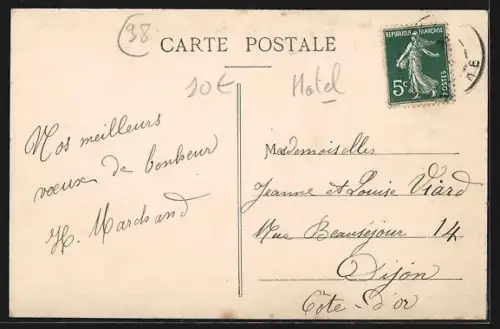 38
CARTE POSTALE
10€
Hotel
REPUBLIQUE FRANÇAISE
5c
POSTES
Nos meilleurs
vœux de bonheur
H. Marchand
Mesdemoiselles
Jeanne et Louise Viard
Rue Beauséjour 14
Dijon
Côte-d'or